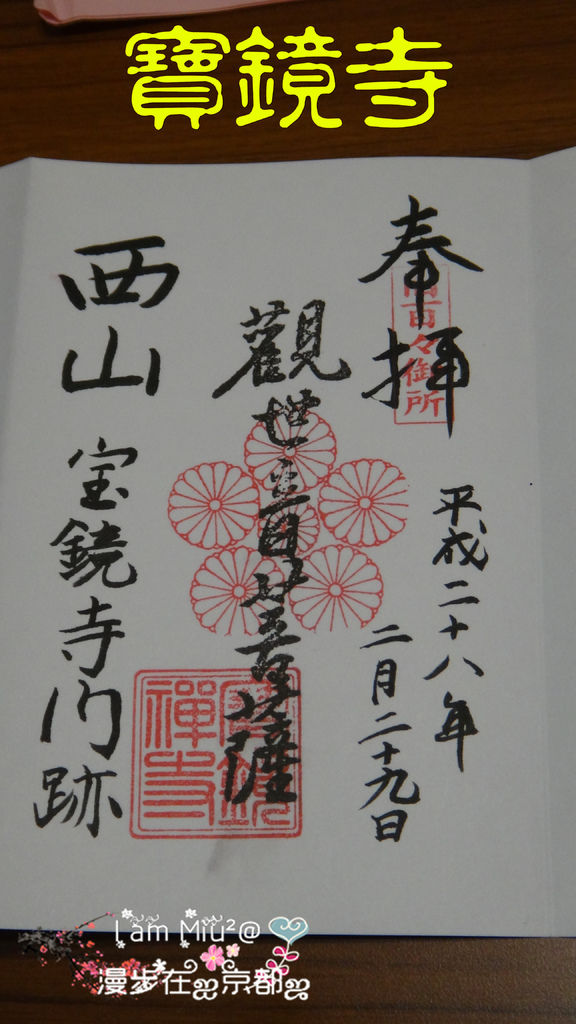 寶鏡寺
奉拝
百々御所
平成二十八年
二月二十九日
觀世音菩薩
寶鏡
禅寺
西山
宝鏡寺门跡
Lam Miu²@
漫步在京都